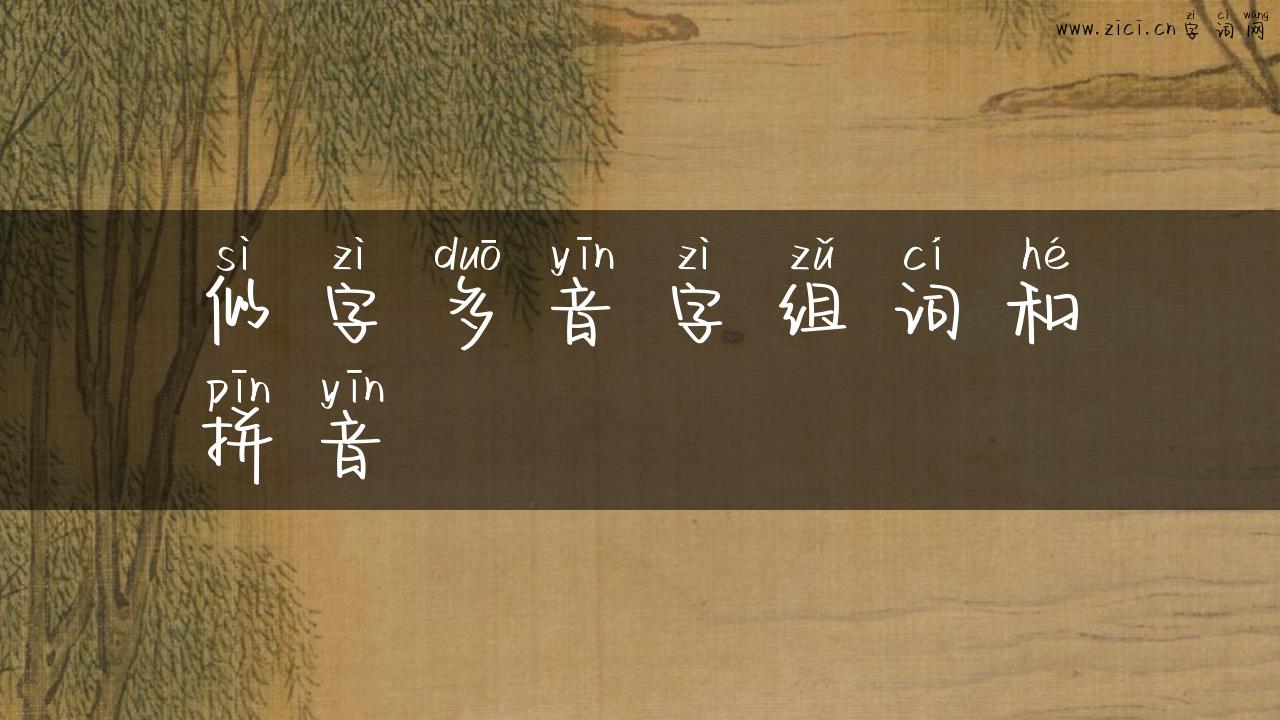 zì cí wǎng
www.zici.cn 字 词 网
sì zì duō yīn zì zǔ cí hé
似 字 多 音 字 组 词 和
pīn yīn
拼 音